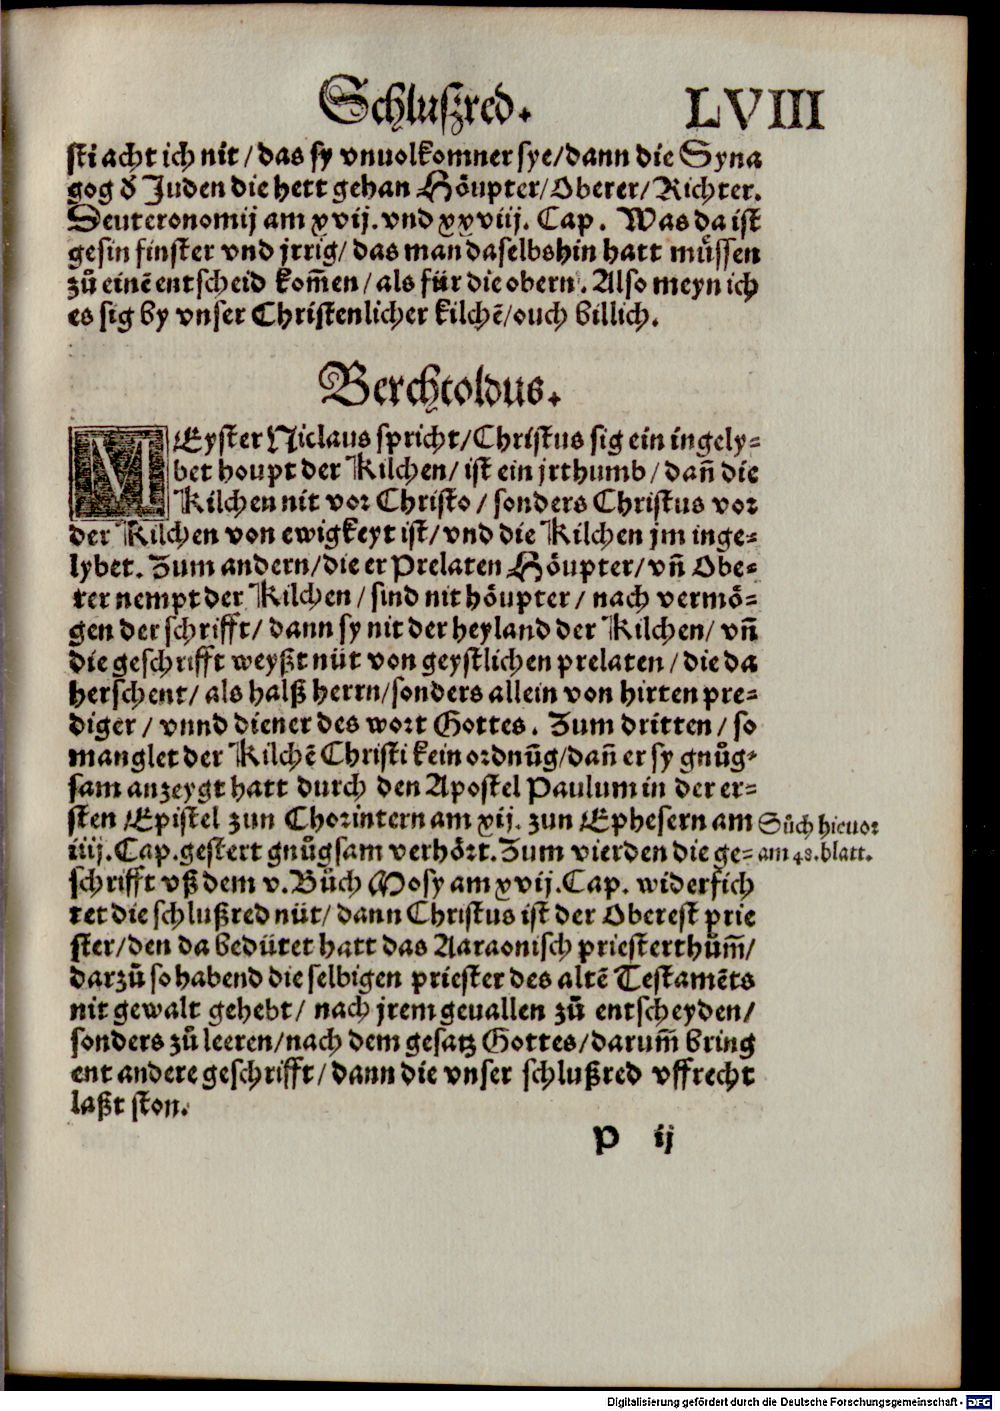 Schluſzred. LVIII
ſti acht ich nit / das ſy vnuolkomner ſye / dann die Syna
gog d̕ Juden die hett gehan Höupter / Oberer / Richter.
Deuteronomij am xvij. vnd xxviij. Cap. Was da iſt
geſin finſter vnd jrrig / das man daſelbshin hatt müſſen
zů einē entſcheid kom̄en / als für die obern. Alſo meyn ich
es ſig by vnſer Chriſtenlicher kilchē / ouch billich.
Berchtoldus.
MEyſter Niclaus ſpricht / Chriſtus ſig ein ingely⸗
bet houpt der Kilchen / iſt ein jrthumb / dañ die
Kilchen nit vor Chriſto / ſonders Chriſtus vor
der Kilchen von ewigkeyt iſt / vnd die Kilchen jm inge⸗
lybet. Zum andern / die er Prelaten Höupter / vñ Obe⸗
rer nempt der Kilchen / ſind nit höupter / nach vermö⸗
gen der ſchrifft / dann ſy nit der heyland der Kilchen / vñ
die geſchrifft weyßt nüt von geyſtlichen prelaten / die da
herſchent / als halß herrn / ſonders allein von hirten pre⸗
diger / vnnd diener des wort Gottes. Zum dritten / ſo
manglet der Kilchē Chriſti kein ordnūg / dañ er ſy gnůg⸗
ſam anzeygt hatt durch den Apoſtel Paulum in der er⸗
ſten Epiſtel zun Chorintern am xij. zun Epheſern am
iiij. Cap. geſtert gnůgſam verhört. Zum vierden die ge⸗
Sůch hieuor
am 48. blatt.
ſchrifft vß dem v. Bůch Moſy am xvij. Cap. widerfich
tet die ſchlußred nüt / dann Chriſtus iſt der Obereſt prie
ſter / den da bedütet hatt das Aaraoniſch prieſterthům̄ /
darzů ſo habend die ſelbigen prieſter des altē Teſtamēts
nit gewalt gehebt / nach jrem geuallen zů entſcheyden /
ſonders zů leeren / nach dem geſatz Gottes / darum̄ bring
ent andere geſchrifft / dann die vnſer ſchlußred vffrecht
laßt ſton.
P ij
Digitalisierung gefördert durch die Deutsche Forschungsgemeinschaft - DFG